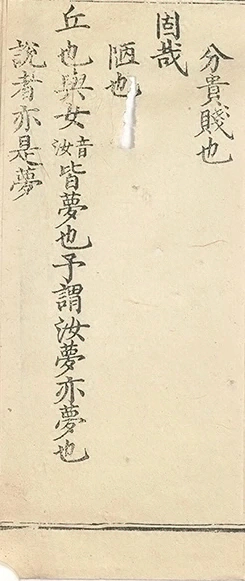 分貴賤也
固哉
陋也
丘也與女音汝皆夢也予謂汝夢亦夢也
說者亦是夢